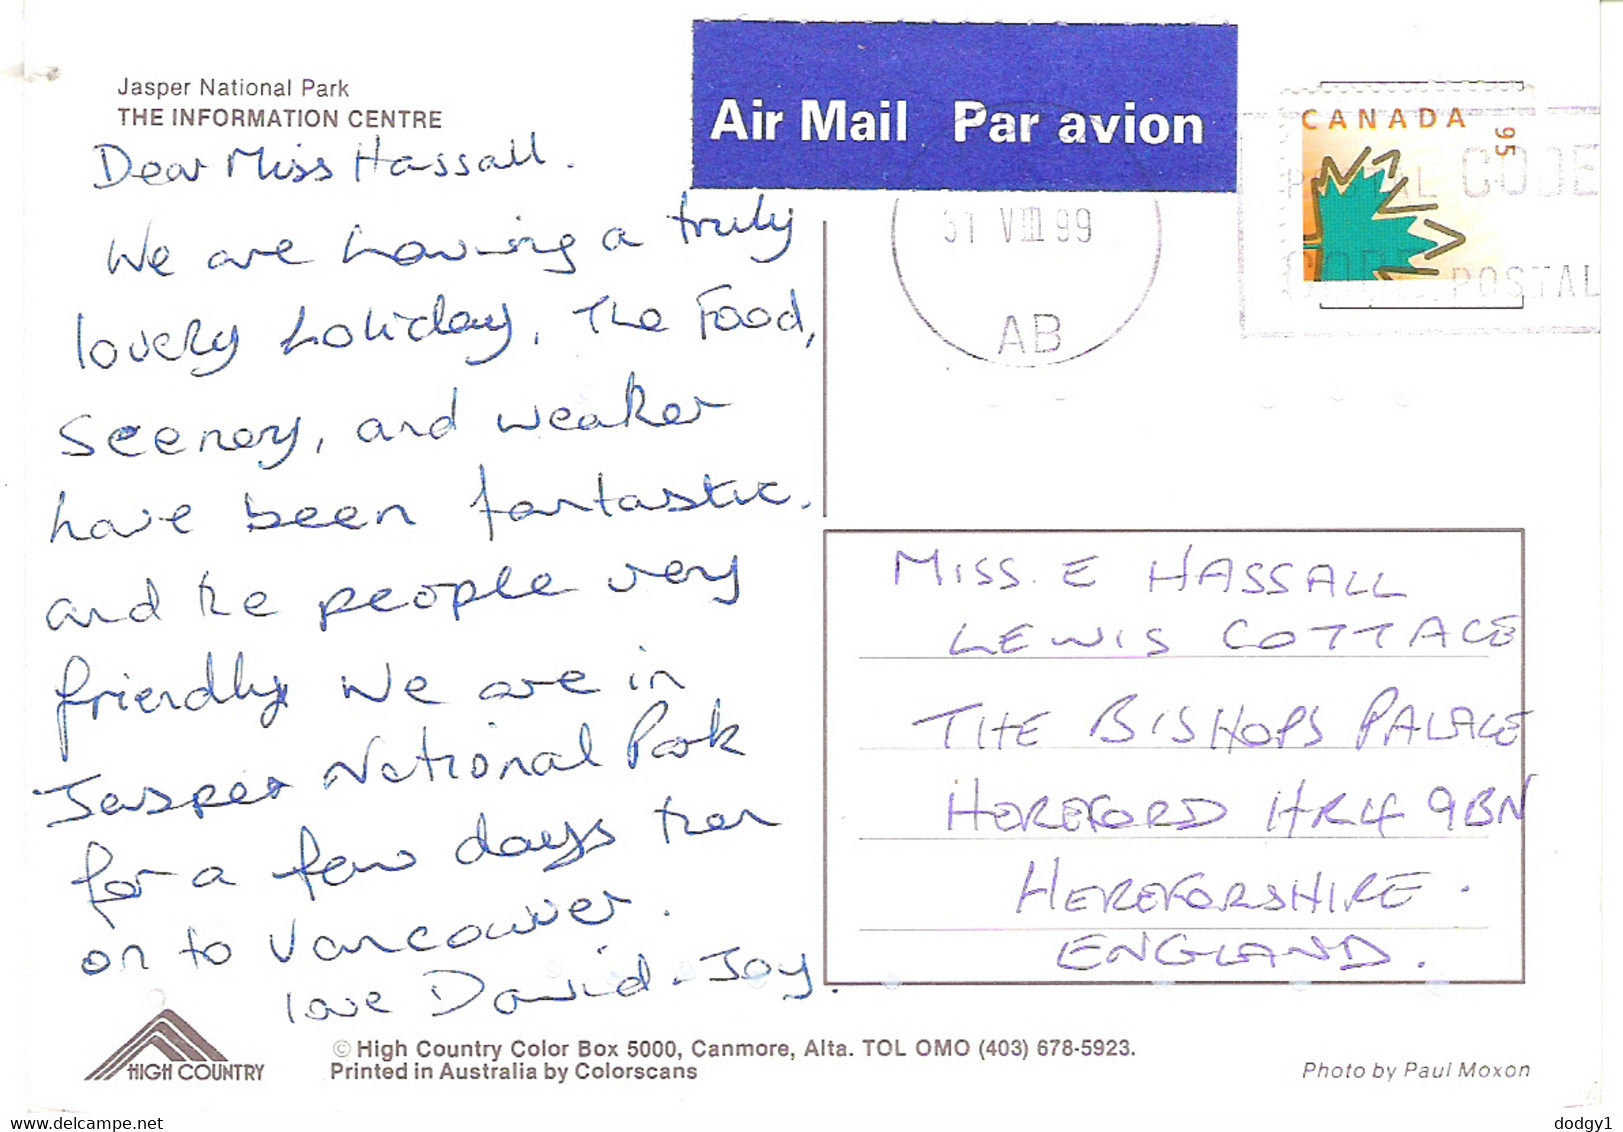 Jasper National Park
THE INFORMATION CENTRE
Dear Miss Hassall.
We are having a truly
lovely holiday, The Food,
Scenery, and weather
have been fantastic.
and the people very
friendly. We are in
Jasper National Park
for a few days then
on to Vancouver.
love David & Joy.
Air Mail Par avion
CANADA 95
31 VIII 99
AB
POSTAL CODE
CODE POSTAL
MISS. E HASSALL
LEWIS COTTAGE
THE BISHOPS PALACE
HEREFORD HR4 9BN
HEREFORSHIRE.
ENGLAND.
HIGH COUNTRY
© High Country Color Box 5000, Canmore, Alta. TOL OMO (403) 678-5923.
Printed in Australia by Colorscans
Photo by Paul Moxon
www.delcampe.net
dodgy1